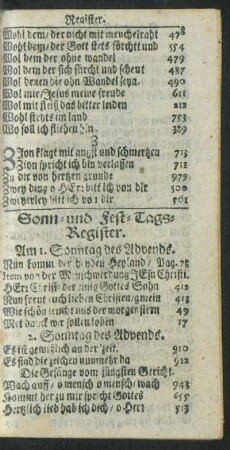 Register.
Wohl dem/ der nicht mit meuchelraht 478
Wohl dem/ der Gott stets förcht und 554
Wol dem der ohne wandel 479
Wol dem der sich fürcht und scheut 487
Wol denen die ohn Wandel seyn. 490
Wol mir/Jesus meine freude 611
Wol mit fleiß das bitter leiden 212
Wohl stehts im land 753
Wo soll ich fliehen hin 389
Z
Zion klagt mit angst und schmertzen 713
Zion spricht ich bin verlassen 711
Zu dir von hertzen grunde 979
Zwey ding o HErr bitt ich von dir 500
Zweyerley bitt ich von dir 501
Sonn- und Fest-Tags-
Register.
Am 1. Sonntag des Advends.
Nun komm der Heyden Heyland/ Pag. 78
Item von der Menschwerdung JEsu Christi.
HErr Christ der einig Gottes Sohn 412
Nun freut euch lieben Christen gmein 413
Wie schön leucht uns der morgenstern 49
Mit danck wir sollen loben 17
2. Sonntag des Advends.
Es ist gewißlich an der zeit. 910
Es sind die zeichen nunmehr da 912
Die Gesänge vom jüngsten Gericht.
Wach auff/ o mensch o mensch/ wach 943
Kommt her zu mir spricht Gottes 655
Hertzlich lieb hab ich dich/ o Herr 513